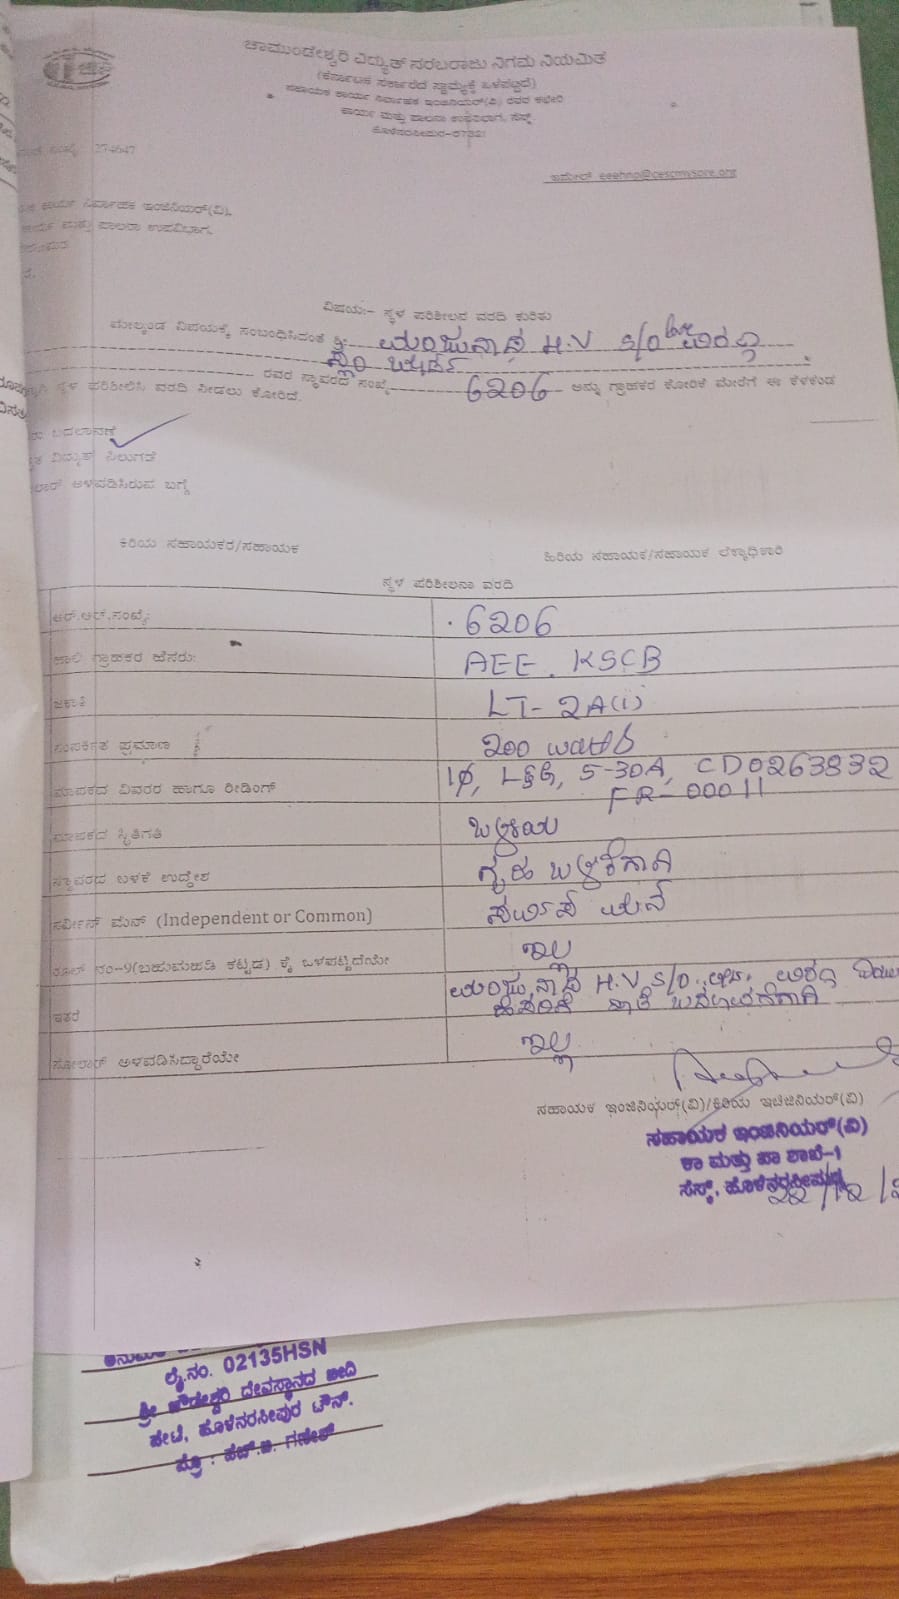 ಚಾಮುಂಡೇಶ್ವರಿ ವಿದ್ಯುತ್ ಸರಬರಾಜು ನಿಗಮ ನಿಯಮಿತ
(ಕರ್ನಾಟಕ ಸರ್ಕಾರದ ಸ್ವಾಮ್ಯಕ್ಕೆ ಒಳಪಟ್ಟಿದೆ)
ಸಹಾಯಕ ಕಾರ್ಯ ನಿರ್ವಾಹಕ ಇಂಜಿನಿಯರ್(ವಿ) ರವರ ಕಛೇರಿ
ಕಾರ್ಯ ಮತ್ತು ಪಾಲನಾ ಉಪವಿಭಾಗ, ಸೆಸ್ಕ್.
ಹೊಳೆನರಸೀಪುರ-573211
274647
ಇಮೇಲ್ eeehnp@cescmysore.org
ಕಾರ್ಯ ನಿರ್ವಾಹಕ ಇಂಜಿನಿಯರ್(ವಿ),
ಮತ್ತು ಪಾಲನಾ ಉಪವಿಭಾಗ,
ವಿಷಯ:- ಸ್ಥಳ ಪರಿಶೀಲನ ವರದಿ ಕುರಿತು
ಮೇಲ್ಕಂಡ ವಿಷಯಕ್ಕೆ ಸಂಬಂಧಿಸಿದಂತೆ ಶ್ರೀ ಮಂಜುನಾಥ H.V S/O
ಸ್ಲಂ ಬೋರ್ಡ್
ರವರ ಸ್ಥಾವರದ ಸಂಖ್ಯೆ 6206 ಅನ್ನು ಗ್ರಾಹಕರ ಕೋರಿಕೆ ಮೇರೆಗೆ ಈ ಕೆಳಕಂಡ
ಸ್ಥಳ ಪರಿಶೀಲಿಸಿ ವರದಿ ನೀಡಲು ಕೋರಿದೆ.
ಬದಲಾವಣೆ
ವಿದ್ಯುತ್ ನಿಲುಗಡೆ
ಅಳವಡಿಸಿರುವ ಬಗ್ಗೆ
ಕಿರಿಯ ಸಹಾಯಕರ/ಸಹಾಯಕ
ಹಿರಿಯ ಸಹಾಯಕ/ಸಹಾಯಕ ಲೆಕ್ಕಾಧಿಕಾರಿ
ಸ್ಥಳ ಪರಿಶೀಲನಾ ವರದಿ
ಆರ್.ಆರ್.ಸಂಖ್ಯೆ: 6206
ಹಾಲಿ ಗ್ರಾಹಕರ ಹೆಸರು: AEE. KSCB
ಜಕಾತಿ LT- 2A(i)
ಪ್ರಮಾಣ 200 watts
ಮಾಪಕದ ವಿವರರ ಹಾಗೂ ರೀಡಿಂಗ್ 1φ, L&G, 5-30A, CD0263832
FR- 00011
ಮಾಪಕದ ಸ್ಥಿತಿಗತಿ ಒಳ್ಳೆಯ
ಸ್ಥಾವರದ ಬಳಕೆ ಉದ್ದೇಶ ಗೃಹ ಬಳಕೆಗಾಗಿ
ಸರ್ವೀಸ್ ಮೆನ್ (Independent or Common) ಸರ್ವಿಸ್ ಮೇನ್
ರೂಲ್ ನಂ-9(ಬಹುಮಹಡಿ ಕಟ್ಟಡ) ಕ್ಕೆ ಒಳಪಟ್ಟಿದೆಯೇ ಇಲ್ಲ
ಮಂಜುನಾಥ H.V S/O
ಇತರೆ ಹೆಸರಿಗೆ ಖಾತೆ ಬದಲಾವಣೆಗಾಗಿ
ಸೋಲಾರ್ ಅಳವಡಿಸಿದ್ದಾರೆಯೇ ಇಲ್ಲ
ಸಹಾಯಕ ಇಂಜಿನಿಯರ್(ವಿ)/ಕಿರಿಯ ಇಂಜಿನಿಯರ್(ವಿ)
ಸಹಾಯಕ ಇಂಜಿನಿಯರ್(ವಿ)
ಕಾ ಮತ್ತು ಪಾ ಶಾಖೆ-1
ಸೆಸ್ಕ್, ಹೊಳೆನರಸೀಪುರ
22/12/
ಲೈ.ನಂ. 02135HSN
ಶ್ರೀ ಚೌಡೇಶ್ವರಿ ದೇವಸ್ಥಾನದ ಬೀದಿ
ಪೇಟೆ, ಹೊಳೆನರಸೀಪುರ ಟೌನ್.
ಪ್ರೊ : ಹೆಚ್.ಬಿ. ಗಣೇಶ್